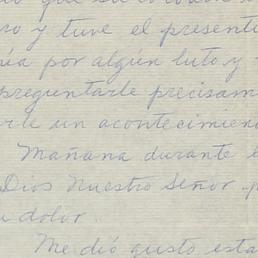 que su
ro y tuve el presenti
ía por algún luto y
preguntarle precisam
rle un acontecimien
Mañana durante l
Dios Nuestro Señor p
u dolor.
Me dió gusto esta